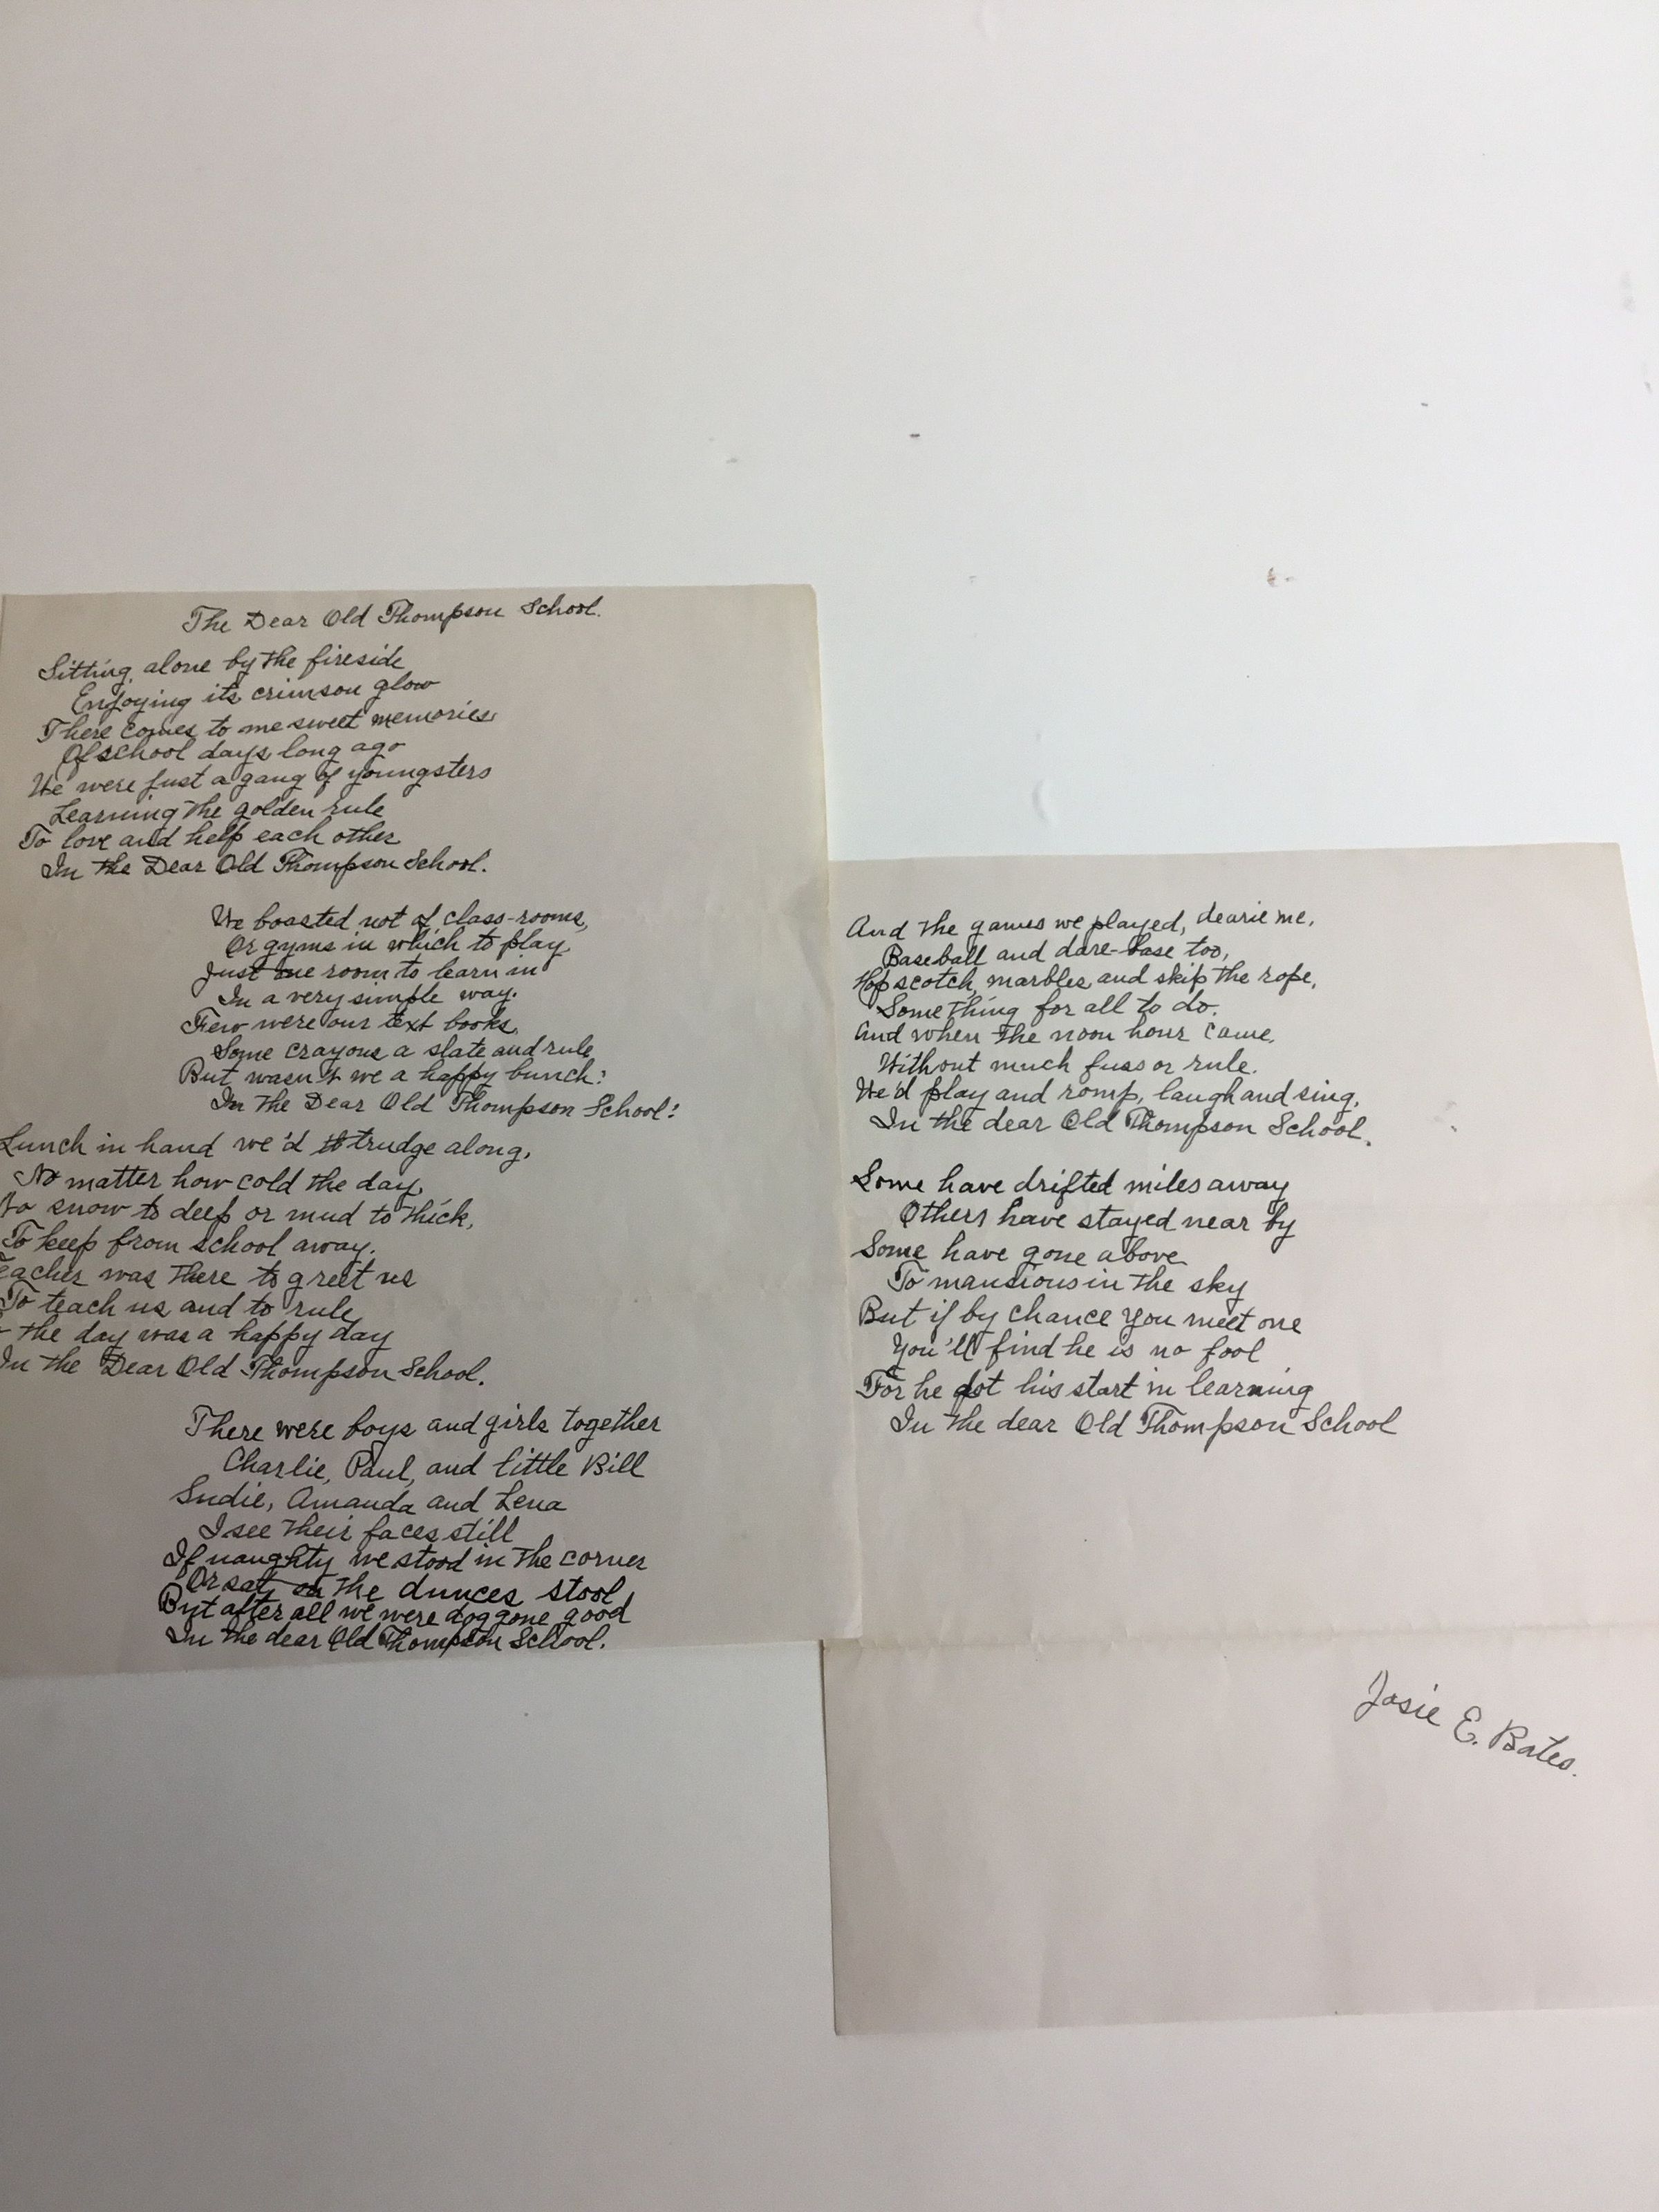 The Dear Old Thompson School.
Sitting alone by the fireside
Enjoying its crimson glow
There comes to me sweet memories
Of school days long ago
We were just a gang of youngsters
Learning the golden rule
To love and help each other
In the Dear Old Thompson School.
We boasted not of class-rooms,
Or gyms in which to play
Just one room to learn in
In a very simple way.
Few were our text books,
Some crayons a slate and rule
But wasn't we a happy bunch:
In the Dear Old Thompson School:
Lunch in hand we'd trudge along,
No matter how cold the day,
No snow to deep or mud to thick,
To keep from school away.
Teacher was there to greet us
To teach us and to rule
the day was a happy day
In the Dear Old Thompson School.
There were boys and girls together
Charlie, Paul, and little Bill
Sudie, Amanda and Lena
I see their faces still
If naughty we stood in the corner
Or sat on the dunces stool
But after all we were doggone good
In the dear Old Thompson School.
And the games we played, dearie me,
Baseball and dare-base too,
Hopscotch, marbles and skip the rope,
Something for all to do.
And when the noon hour came,
Without much fuss or rule.
We'd play and romp, laugh and sing,
In the dear Old Thompson School.
Some have drifted miles away
Others have stayed near by
Some have gone above
To mansions in the sky
But if by chance you meet one
You'll find he is no fool
For he got his start in learning
In the dear Old Thompson School
Josie E. Bates.